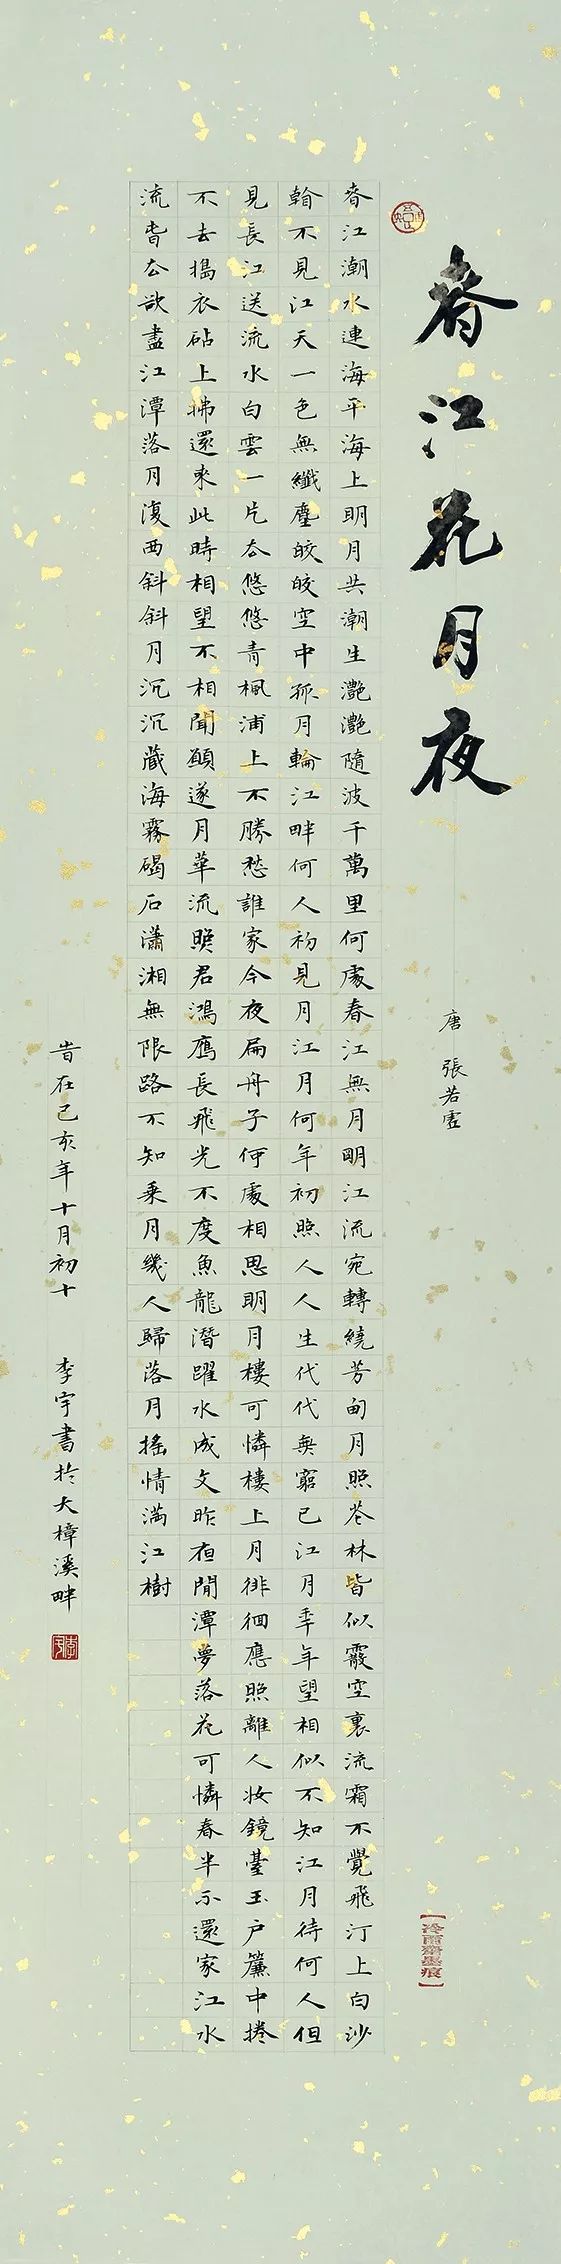 春江花月夜
唐 張若虛
春江潮水連海平海上明月共潮生灩灩隨波千萬里何處春江無月明江流宛轉繞芳甸月照花林皆似霰空裏流霜不覺飛汀上白沙
看不見江天一色無纖塵皎皎空中孤月輪江畔何人初見月江月何年初照人人生代代無窮已江月年年望相似不知江月待何人但
見長江送流水白雲一片去悠悠青楓浦上不勝愁誰家今夜扁舟子何處相思明月樓可憐樓上月徘徊應照離人妝鏡臺玉戶簾中捲
不去搗衣砧上拂還來此時相望不相聞願遂月華流照君鴻鴈長飛光不度魚龍潛躍水成文昨夜閒潭夢落花可憐春半不還家江水
流春去欲盡江潭落月復西斜斜月沉沉藏海霧碣石瀟湘無限路不知乘月幾人歸落月搖情滿江樹
旹在己亥年十月初十 李宇書於大樟溪畔